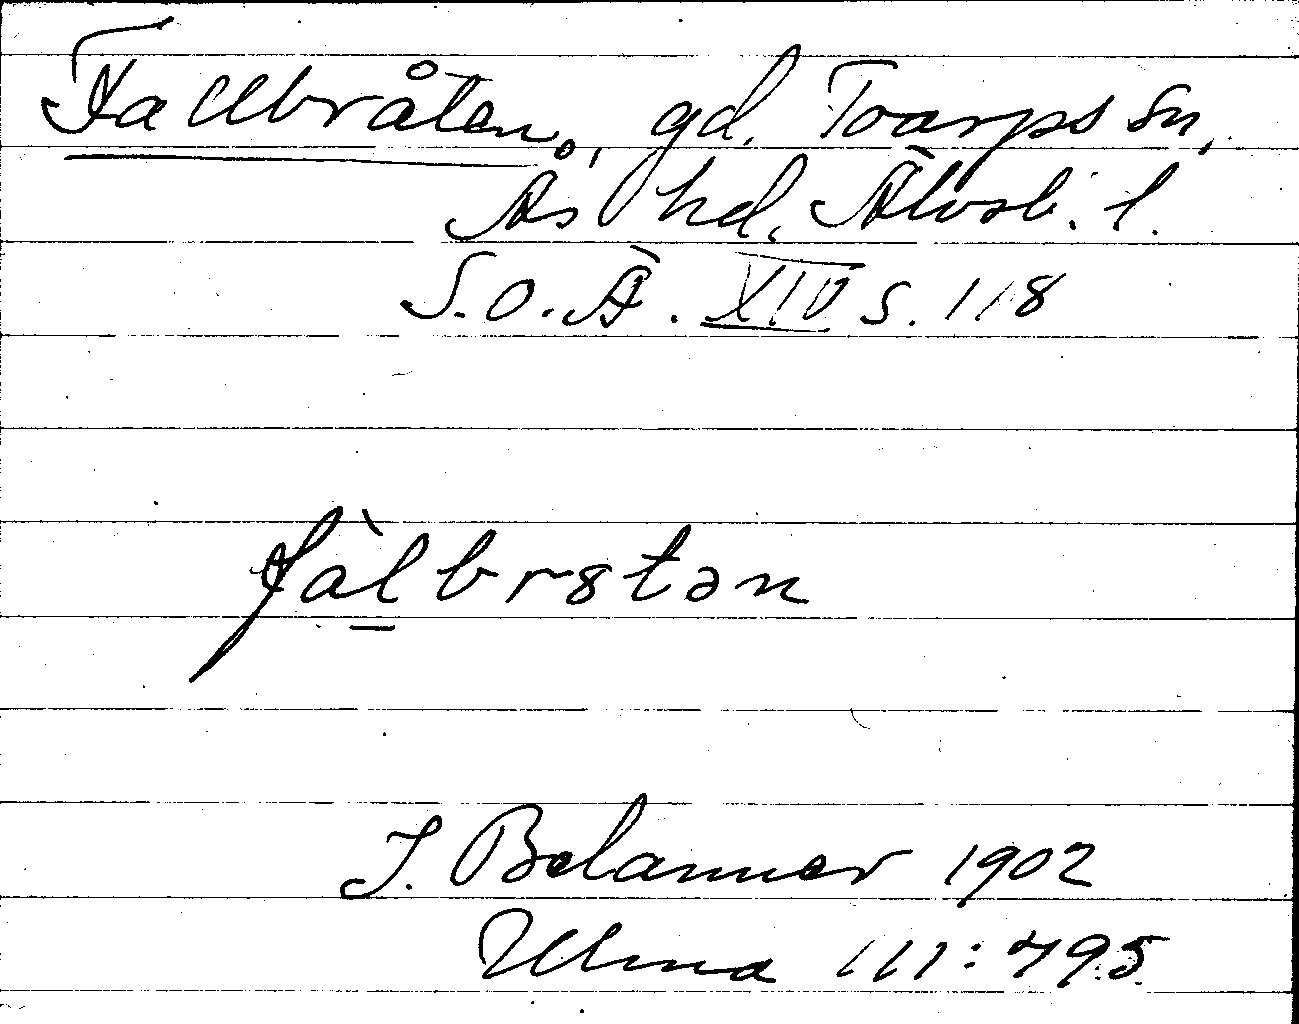 Fallbråten, gd. Toarps sn,
Ås hd. Älvsb. l.
S.O.Ä. XIV s. 118
fàl̲brɤtən
J. Belanner 1902
Ulma 111:495